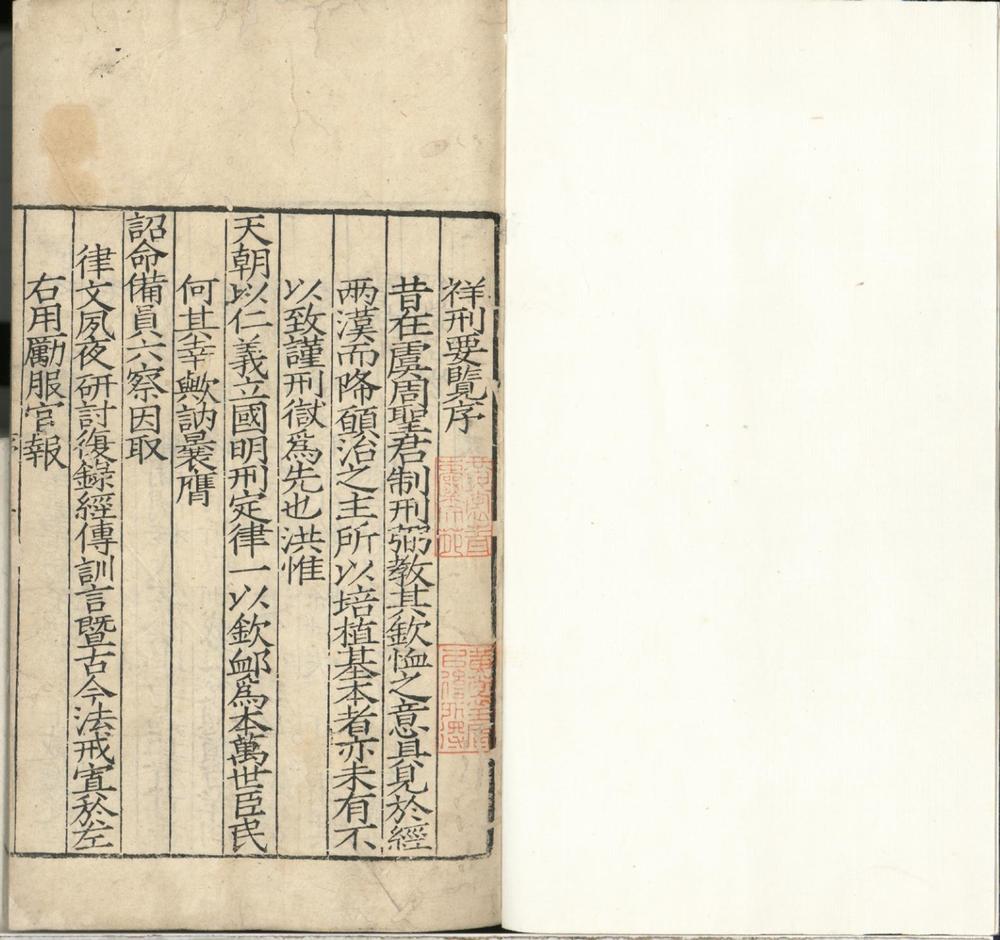 祥刑要覽序
昔在虞周聖君制刑弼教其欽恤之意具見於經
兩漢而降願治之主所以培植基本者亦未有不
以致謹刑獄爲先也洪惟
天朝以仁義立國明刑定律一以欽卹爲本萬世臣民
何其幸歟訥曩膺
詔命備員六察因取
律文夙夜研討復錄經傳訓言暨古今法戒寘於左
右用勵服官報